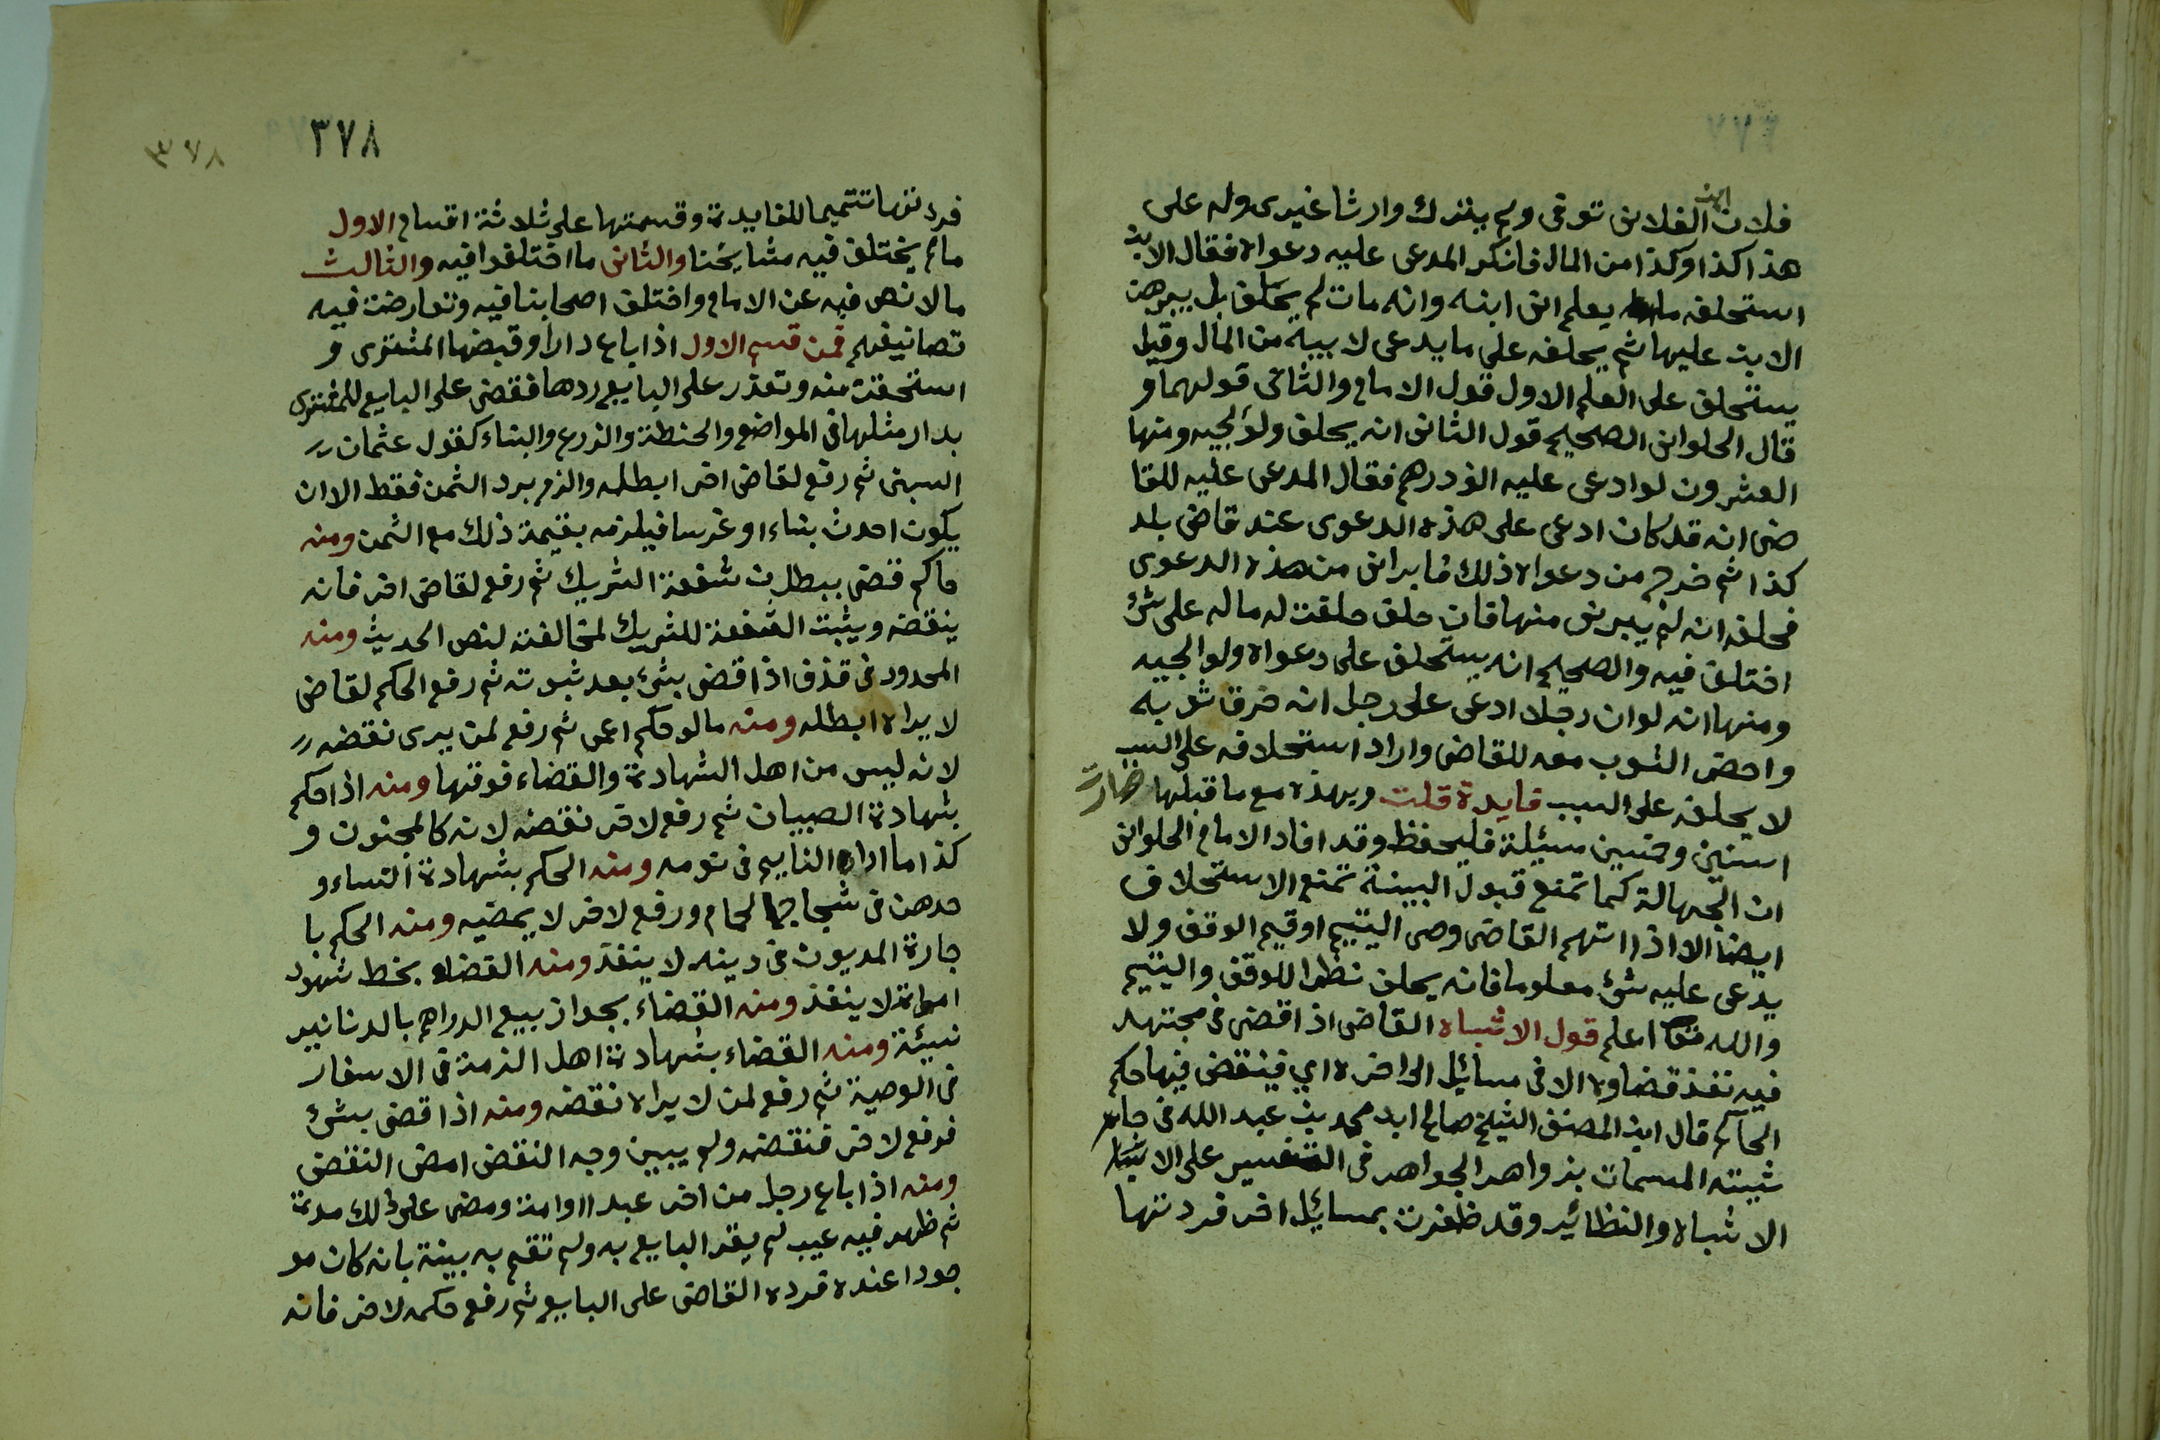 ابن
فلان الفلاني توفى ولم يترك وارثا غيرى وله على
هذا كذا وكذا من المال فانكر المدعى عليه دعواه فقال الابن
استحلفه ما يعلم انى ابنه وانه مات لم يحلف بل يبرهن
الابن عليها ثم يحلفه على ما يدعى لابيه من المال وقيل
يستحلف على العلم الاول قول الامام والثانى قولهما و
قال الحلوانى الصحيح قول الثانى انه يحلف ولوالجيه ومنها
العشرون لو ادعى عليه الف درهم فقال المدعى عليه للقا
ضى انه قد كان ادعى على هذه الدعوى عند قاضى بلد
كذا ثم خرج من دعواه ذلك فابرانى من هذه الدعوى
فحلفه انه لم يبرنى منها فان حلف حلفت له ما له على شئ
اختلف فيه والصحيح انه يستحلف على دعواه ولوالجيه
ومنها انه لو ان رجلا ادعى على رجل انه خرق ثوبه
واحضر الثوب معه للقاضى واراد استحلافه على السبب
لا يحلفه على السبب فايدة قلت وبهذه مع ما قبلها صارت
اسنين وخمسين مسئلة فليحفظ وقد افاد الامام الحلوانى
ان الجهالة كما تمنع قبول البينة تمنع الاستحلاف
ايضا الا اذا اتهم القاضى وصى اليتيم او قيم الوقف ولا
يدعى عليه شئ معلوما فانه يحلف نظرا للوقف واليتيم
والله تعا اعلم قول الاشباه القاضى اذا قضى فى مجتهد
فيه نفذ قضاوه الا فى مسائيل الى اخره اي فينقض فيها حكم
الحاكم قال ابن المصنف الشيخ صالح ابن محمد بن عبد الله فى حا
شيته المسمات بزواهر الجواهر فى التفسير على الاشباه
الاشباه والنظائير وقد ظفرت بمسائيل اخر فردتها
٣٧٨
٣٧٨
فردتها تتميما للفايدة وقسمتها على ثلاثة اقسام الاول
مالم يختلف فيه مشايخنا والثانى ما اختلفوا فيه والثالث
مالا نص فيه عن الامام واختلف اصحابنا فيه وتعارضت فيه
تصانيفهم فمن قسم الاول اذا باع دارا وقبضها المشترى و
استحقت منه وتعذر على البايع ردها فقضى على البايع للمشترى
بدار مثلها فى المواضع والحنطة والذرع والبناء كقول عثمان
السبتى ثم رفع لقاضى اخر ابطله والزم برد الثمن فقط الا ان
يكون احدث بناء او غرسا فيلزمه بقيمة ذلك مع الثمن ومنه
حاكم قضى ببطلان شفعة الشريك ثم رفع لقاضى اخر فانه
ينقضه ويثبت الشفعة للشريك لمخالفته لنص الحديث ومنه
المحدود فى قذف اذا قضى بشئ بعد ثبوته ثم رفع الحكم لقاضى
لا يراه ابطله ومنه مالو حكم اعمى ثم رفع لمن يرى نقضه
لانه ليس من اهل الشهادة والقضاء فوقتها ومنه اذا حكم
بشهادة الصبيان ثم رفع لاخر نقضه لانه كالمجنون و
كذا ما اداه النايم فى نومه ومنه الحكم بشهادة النساء و
حدهن فى شجاج الحمام ورفع لاخر لا يمضيه ومنه الحكم با
جارة المديون فى دينه لا ينفذ ومنه القضاء بخط شهود
امواة لا ينفذ ومنه القضاء بجواز بيع الدراهم بالدنانير
نسيئة ومنه القضاء بشهادة اهل الذمة فى الاسفار
فى الوصية ثم رفع لمن لا يراه نقضه ومنه اذا قضى بشئ
فرفع لاخر فنقضه ولم يبين وجه النقض امضى النقض
ومنه اذا باع رجل من اخر عبدا او امة ومضى على ذلك مدة
ثم ظهر فيه عيب لم يقر البايع به ولم تقم به بينة بانه كان مو
جودا عنده فرده القاضى على البايع ثم رفع حكمه لاخر فانه